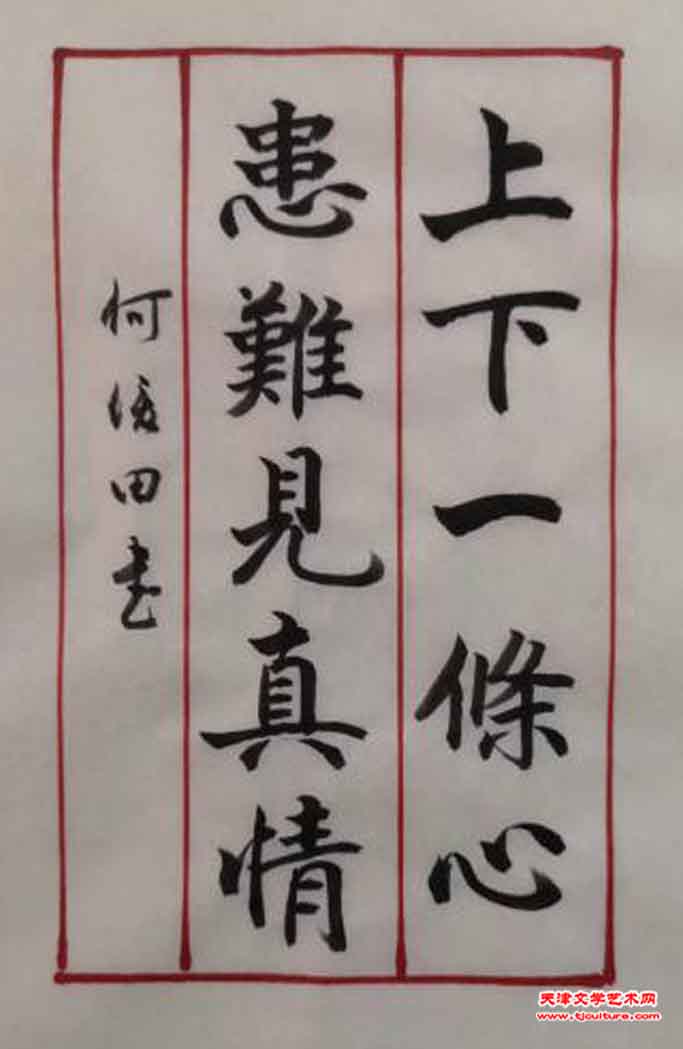 上下一條心
患難見真情
何俊田书
天津文学艺术网
www.tjculture.com